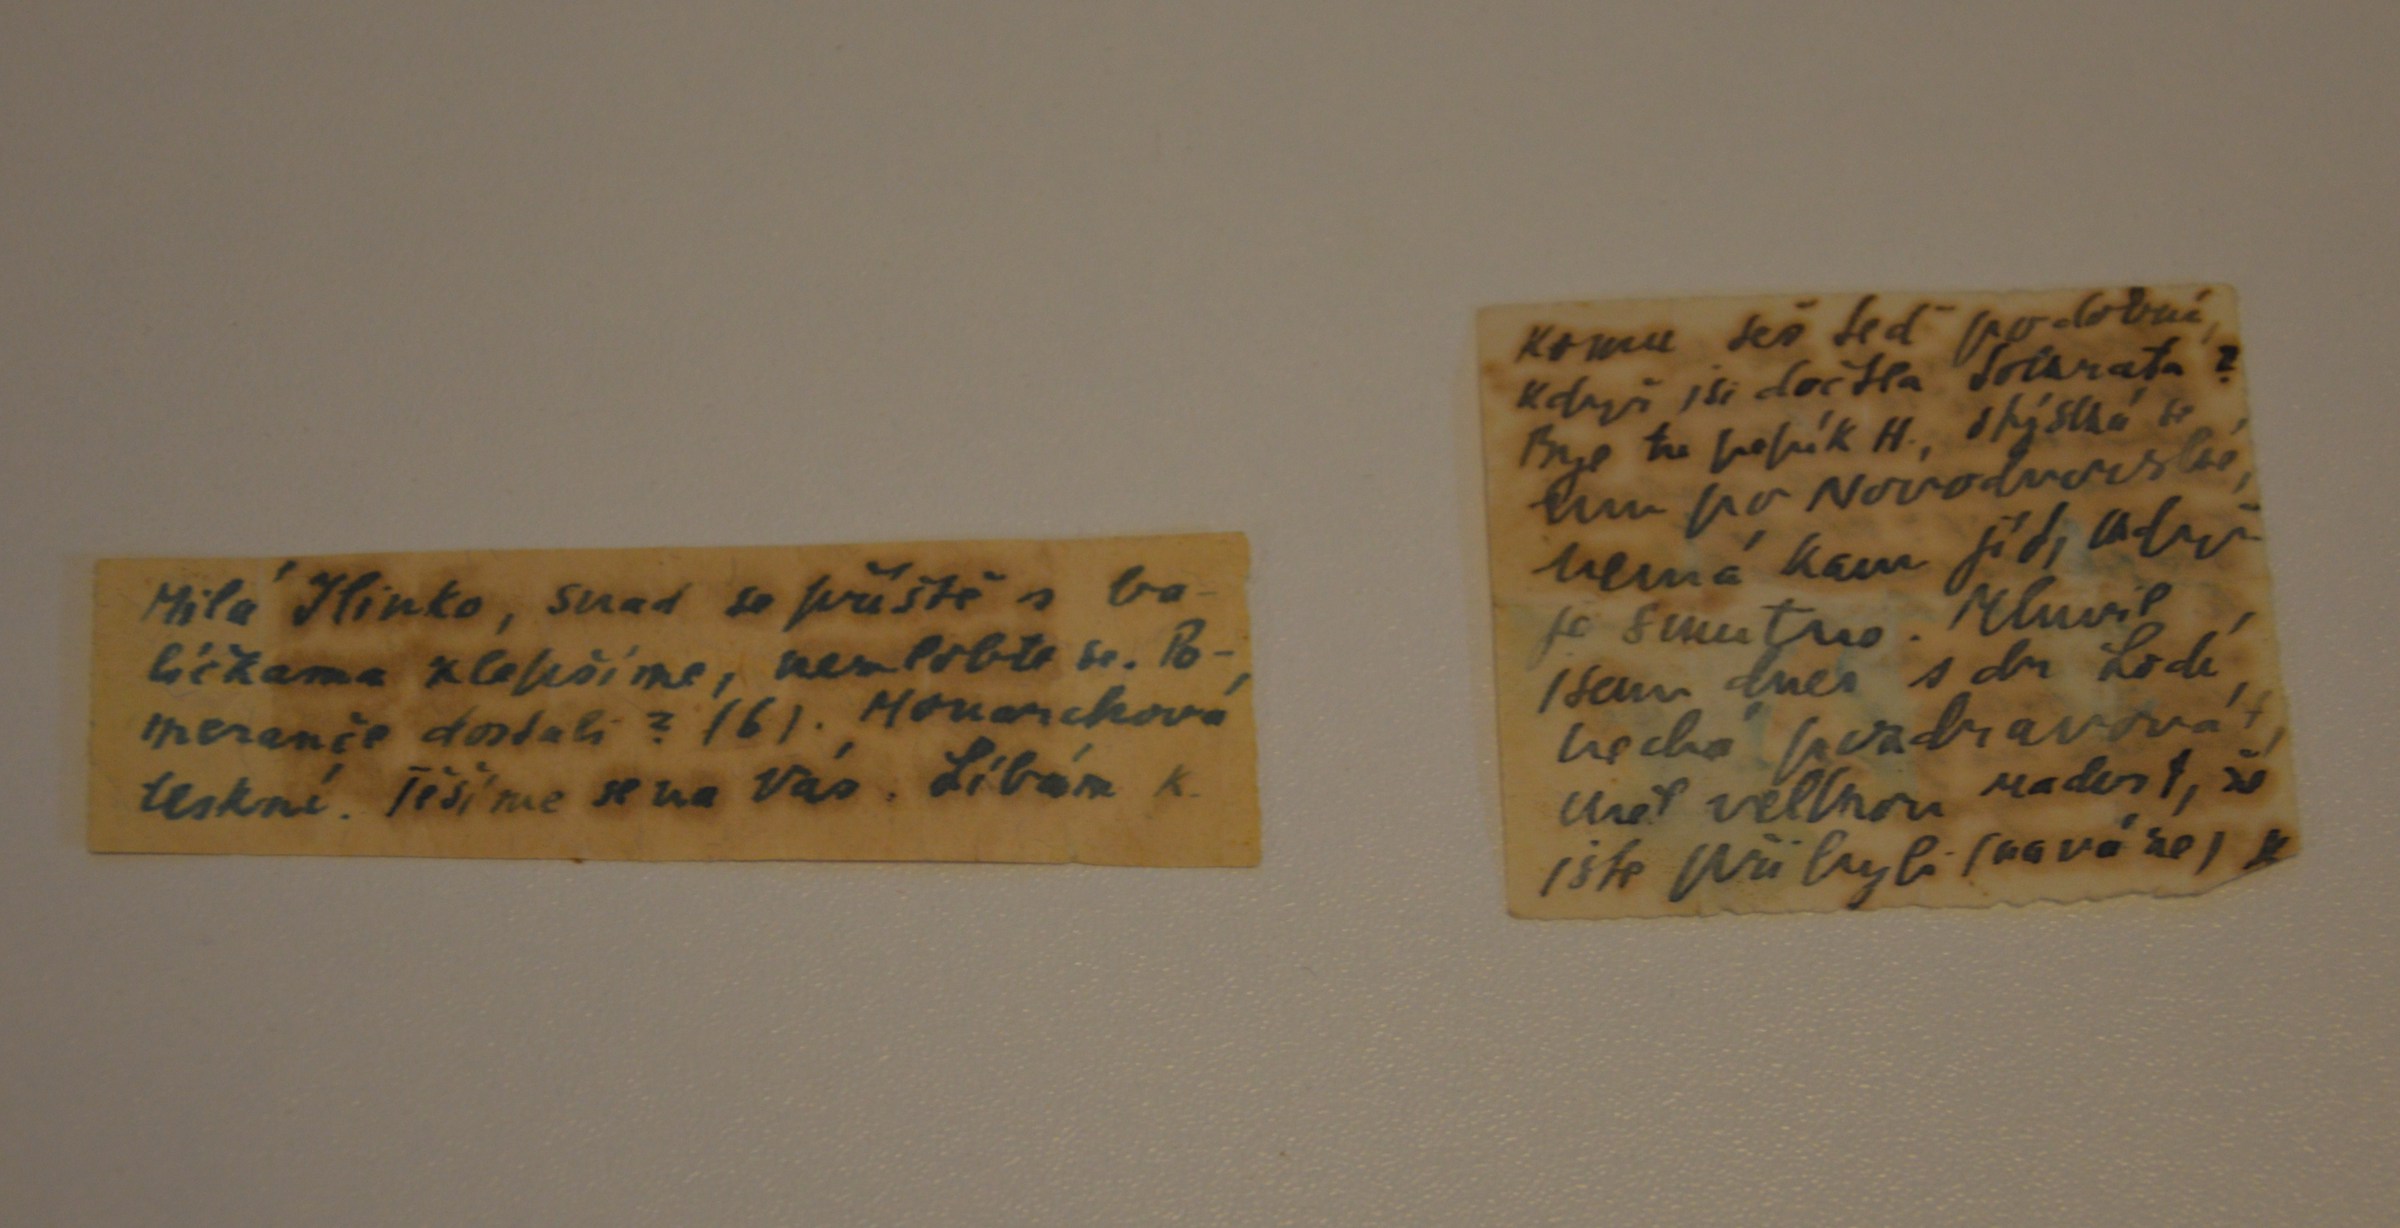 Milá Jlinko, snad se příště s ba-
líčkama zlepšíme, nezlobte se. Po-
meranče dostali? (6). Monarchová
teskní. Těšíme se na Vás. Líbám K.
Komu seš teď podobná,
když jsi dočtla Sokrata?
Byl tu pepík H., stýská se
mu po Novodvorské,
nemá kam jít, když
je smutno. Mluvil
jsem dnes s dr
nechá pozdravovat,
měl velkou radost, že
jste přibyli (na váze) K